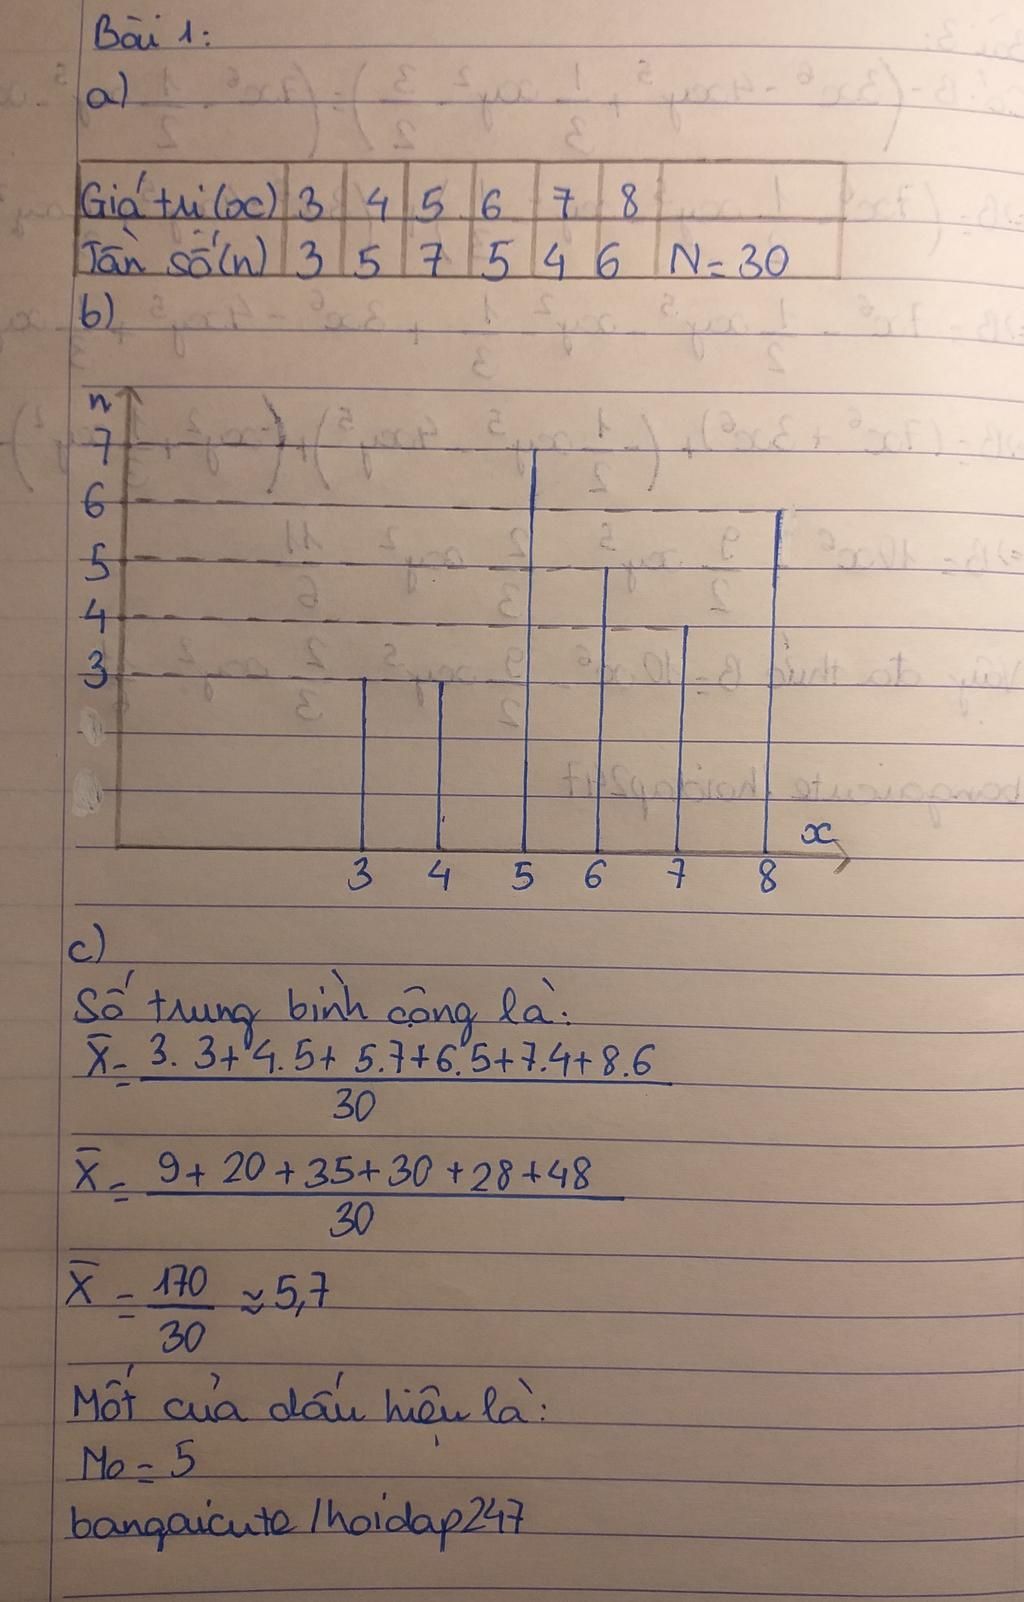 Bài 1:
a)
Giá trị (x) 3 4 5 6 7 8
Tần số (n) 3 5 7 5 4 6 N = 30
b)
n
7
6
5
4
3
x
3 4 5 6 7 8
c)
Số trung bình cộng là:
X̄ = 3.3+4.5+5.7+6.5+7.4+8.6
30
X̄ = 9+20+35+30+28+48
30
X̄ = 170 ≈ 5,7
30
Mốt của dấu hiệu là:
Mo = 5
bangaicute/hoidap247